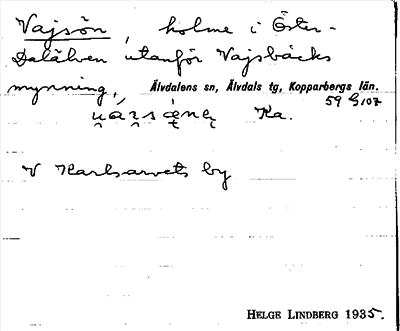 Vajsön, holme i Öster-
Dalälven utanför Vajsbäcks
mynning, Älvdalens sn, Älvdals tg, Kopparbergs län.
59 G 107
Ka.
V Karlsarvets by
HELGE LINDBERG 1935.